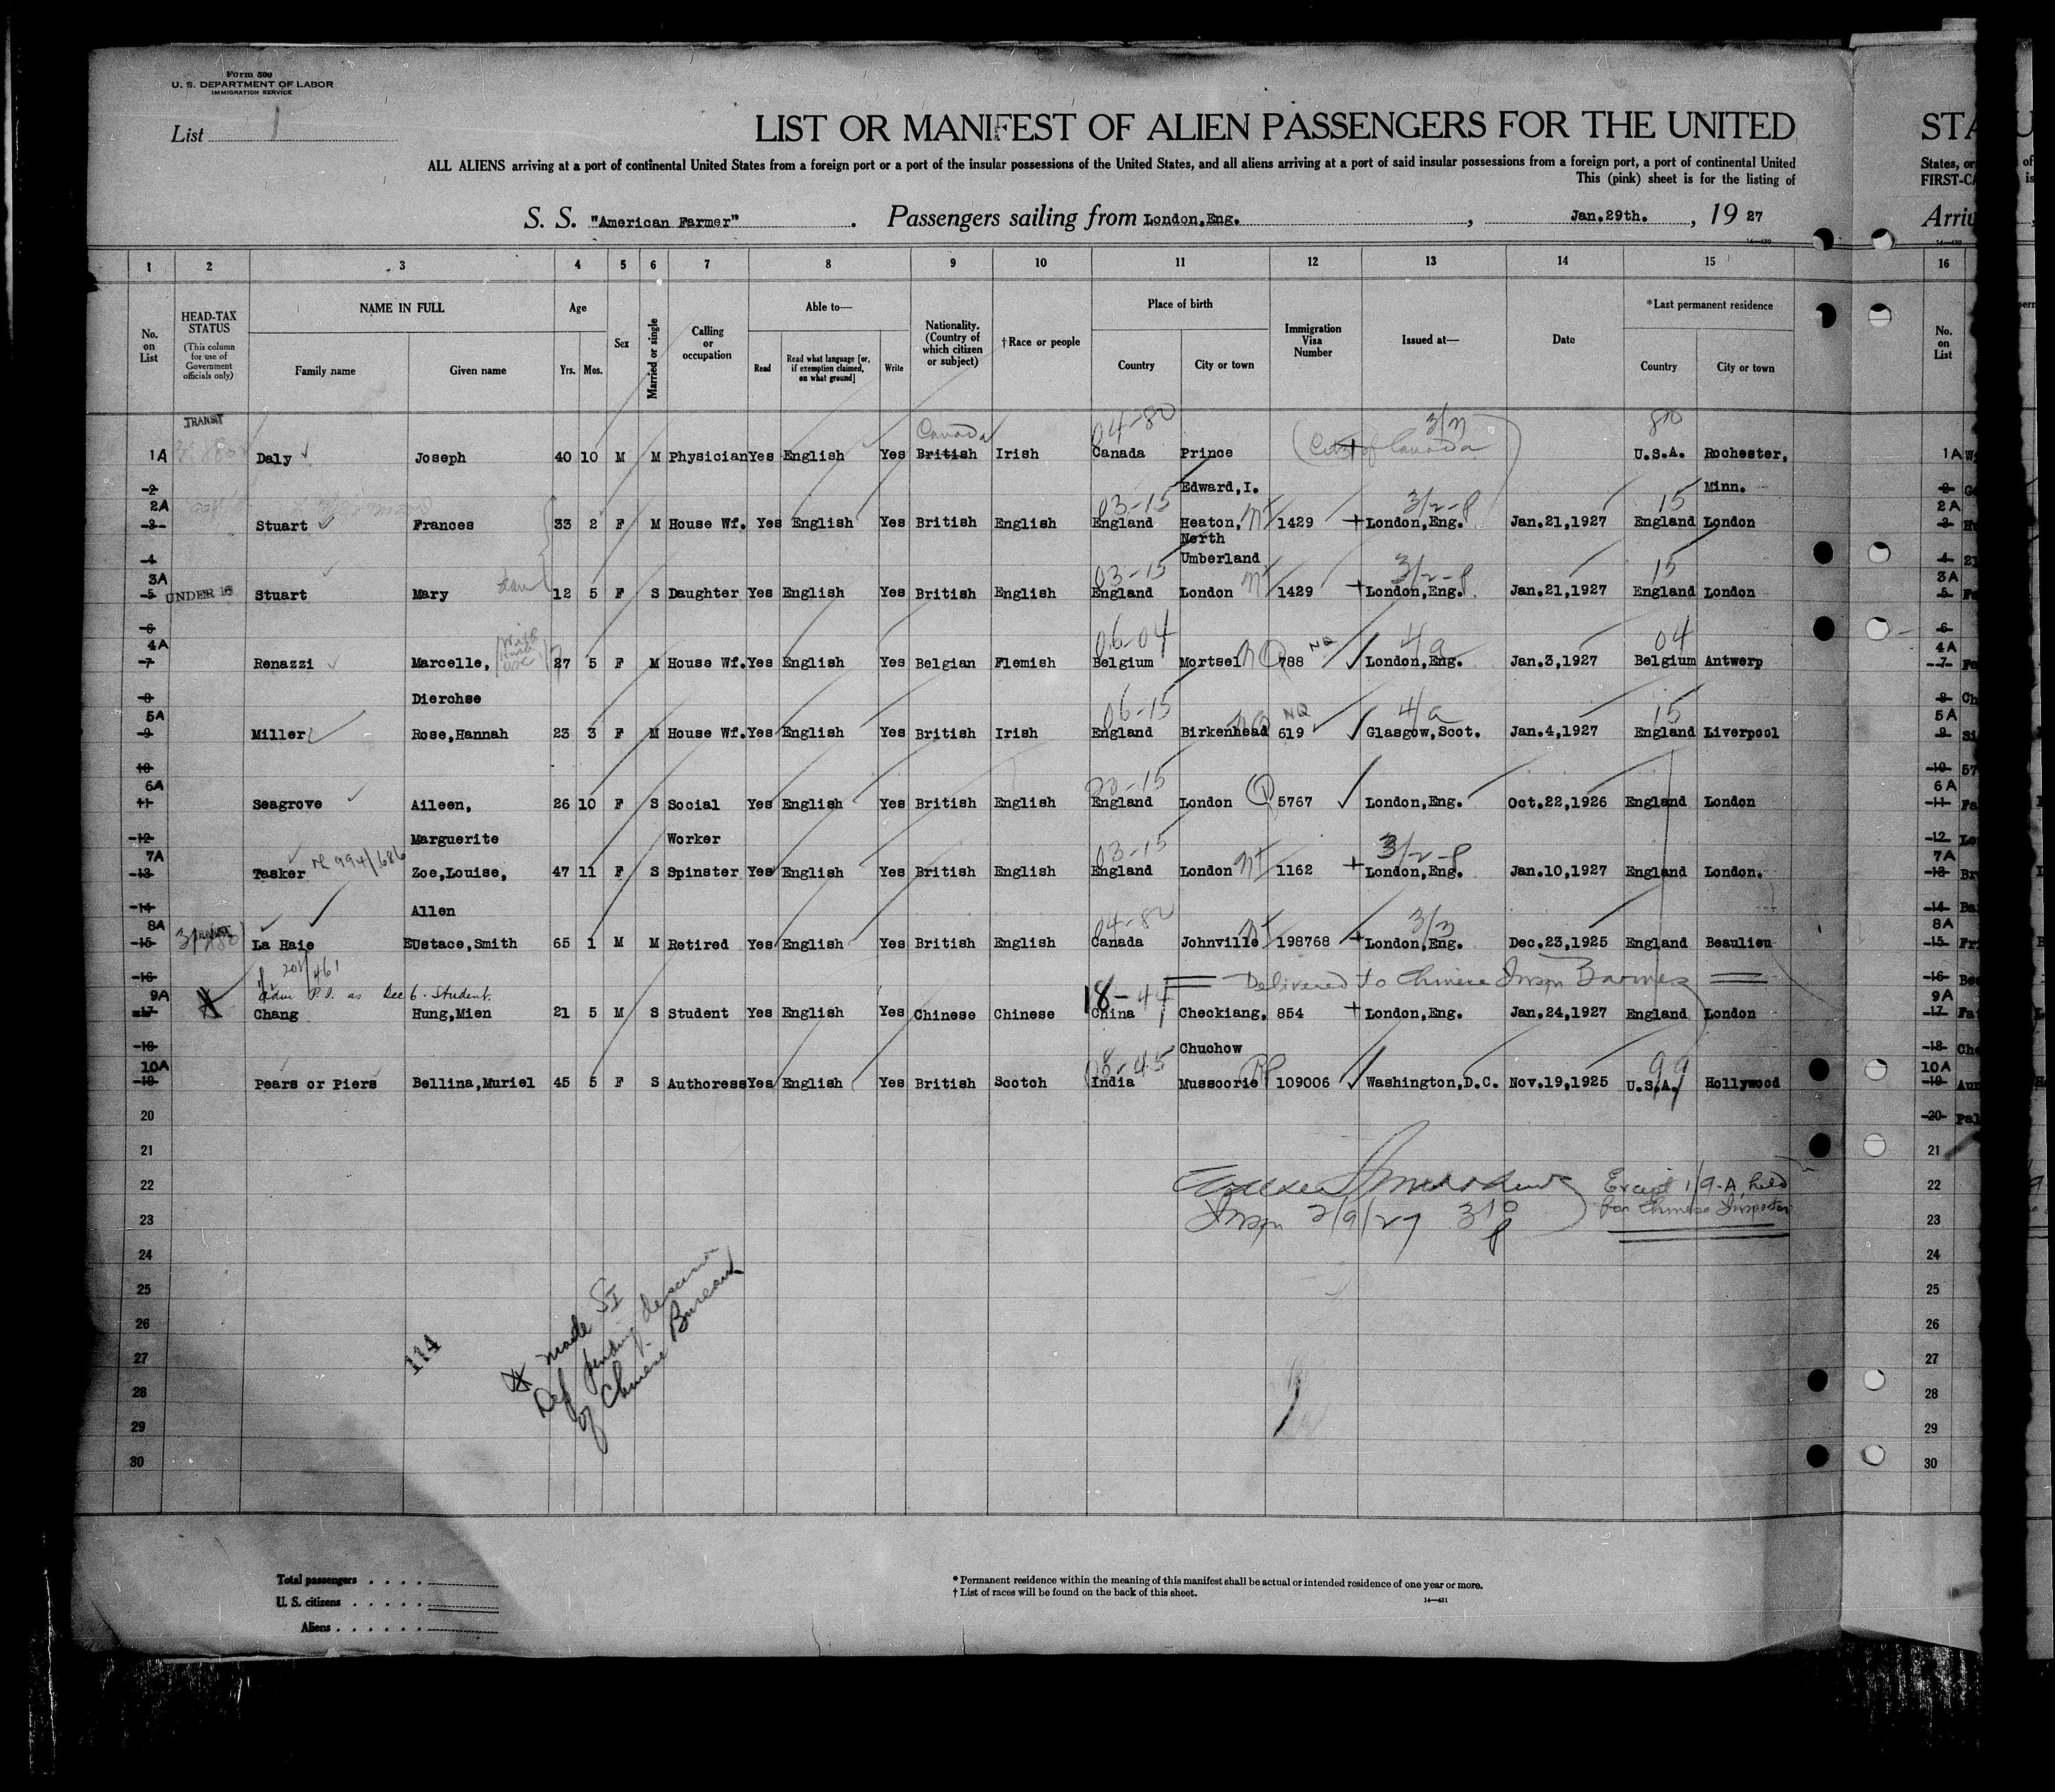 Form 500
U. S. DEPARTMENT OF LABOR
IMMIGRATION SERVICE
List 1
LIST OR MANIFEST OF ALIEN PASSENGERS FOR THE UNITED
ALL ALIENS arriving at a port of continental United States from a foreign port or a port of the insular possessions of the United States, and all aliens arriving at a port of said insular possessions from a foreign port, a port of continental United
This (pink) sheet is for the listing of
S. S. "American Farmer". Passengers sailing from London,Eng., Jan.29th., 19 27
STA
States, or
FIRST-CA
Arriv
1 2 3 4 5 6 7 8 9 10 11 12 13 14 15 16
No. on List
HEAD-TAX STATUS (This column for use of Government officials only)
NAME IN FULL
Family name
Given name
Age
Yrs. Mos.
Sex
Married or single
Calling or occupation
Able to—
Read
Read what language [or, if exemption claimed, on what ground]
Write
Nationality. (Country of which citizen or subject)
†Race or people
Place of birth
Country
City or town
Immigration Visa Number
Issued at—
Date
*Last permanent residence
Country
City or town
No. on List
TRANSIT Canada 04-80 3/M 810
1A Daly Joseph 40 10 M M Physician Yes English Yes British Irish Canada Prince U.S.A. Rochester, 1A
2 Edward,I. Minn.
03-15 3/2-P 15
2A 3 Stuart Frances 33 2 F M House Wf. Yes English Yes British English England Heaton, 1429 London,Eng. Jan.21,1927 England London 2A 3
North
4 Umberland 4
03-15 3/2-P 15
3A 5 UNDER 16 Stuart Mary 12 5 F S Daughter Yes English Yes British English England London 1429 London,Eng. Jan.21,1927 England London 3A 5
6 6
06-04 NQ 4/a 04
4A 7 Renazzi Marcelle, 27 5 F M House Wf. Yes English Yes Belgian Flemish Belgium Mortsel 788 London,Eng. Jan.3,1927 Belgium Antwerp 4A 7
8 Dierchse 8
06-15 NQ 4/a 15
5A 9 Miller Rose,Hannah 23 3 F M House Wf. Yes English Yes British Irish England Birkenhead 619 Glasgow,Scot. Jan.4,1927 England Liverpool 5A 9
10 10
6A 11 Seagrove Aileen, 26 10 F S Social Yes English Yes British English England London 5767 London,Eng. Oct.22,1926 England London 6A 11
12 Marguerite Worker 12
03-15 3/2-P
7A 13 Tasker 994/686 Zoe,Louise, 47 11 F S Spinster Yes English Yes British English England London 1162 London,Eng. Jan.10,1927 England London. 7A 13
14 Allen 14
04-80 3/M
8A 15 La Haie Eustace,Smith 65 1 M M Retired Yes English Yes British English Canada Johnville 198768 London,Eng. Dec.23,1925 England Beaulieu 8A 15
16 Delivered to Chinese Inspr Barnes 16
adm P.I. as Sec 6. Student.
18-44
9A 17 Chang Hung,Mien 21 5 M S Student Yes English Yes Chinese Chinese China Checkiang, 854 London,Eng. Jan.24,1927 England London 9A 17
18 Chuchow 18
08-45 99
10A 19 Pears or Piers Bellina,Muriel 45 5 F S Authoress Yes English Yes British Scotch India Mussoorie 109006 Washington,D.C. Nov.19,1925 U.S.A. Hollywood 10A 19
20 20
21 21
22 Except 1/9-A, held 22
23 Inspr 2/9/27 310 P for Chinese Inspector 23
24 24
25 25
26 26
27 27
28 28
29 29
30 30
114
made SI
Def pending decision
of Chinese Bureau
Total passengers
U. S. citizens
Aliens
* Permanent residence within the meaning of this manifest shall be actual or intended residence of one year or more.
† List of races will be found on the back of this sheet.
14—431